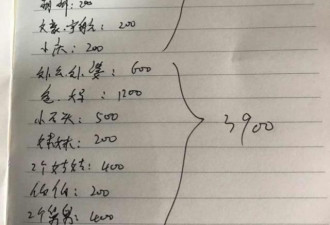 200
大表 宇航：200
小庆：200
外公外婆：600
爸 大宇：1200
小石头：500
妹妹：200
2个姑姑：400
伯伯：200
2个舅舅：400
3900